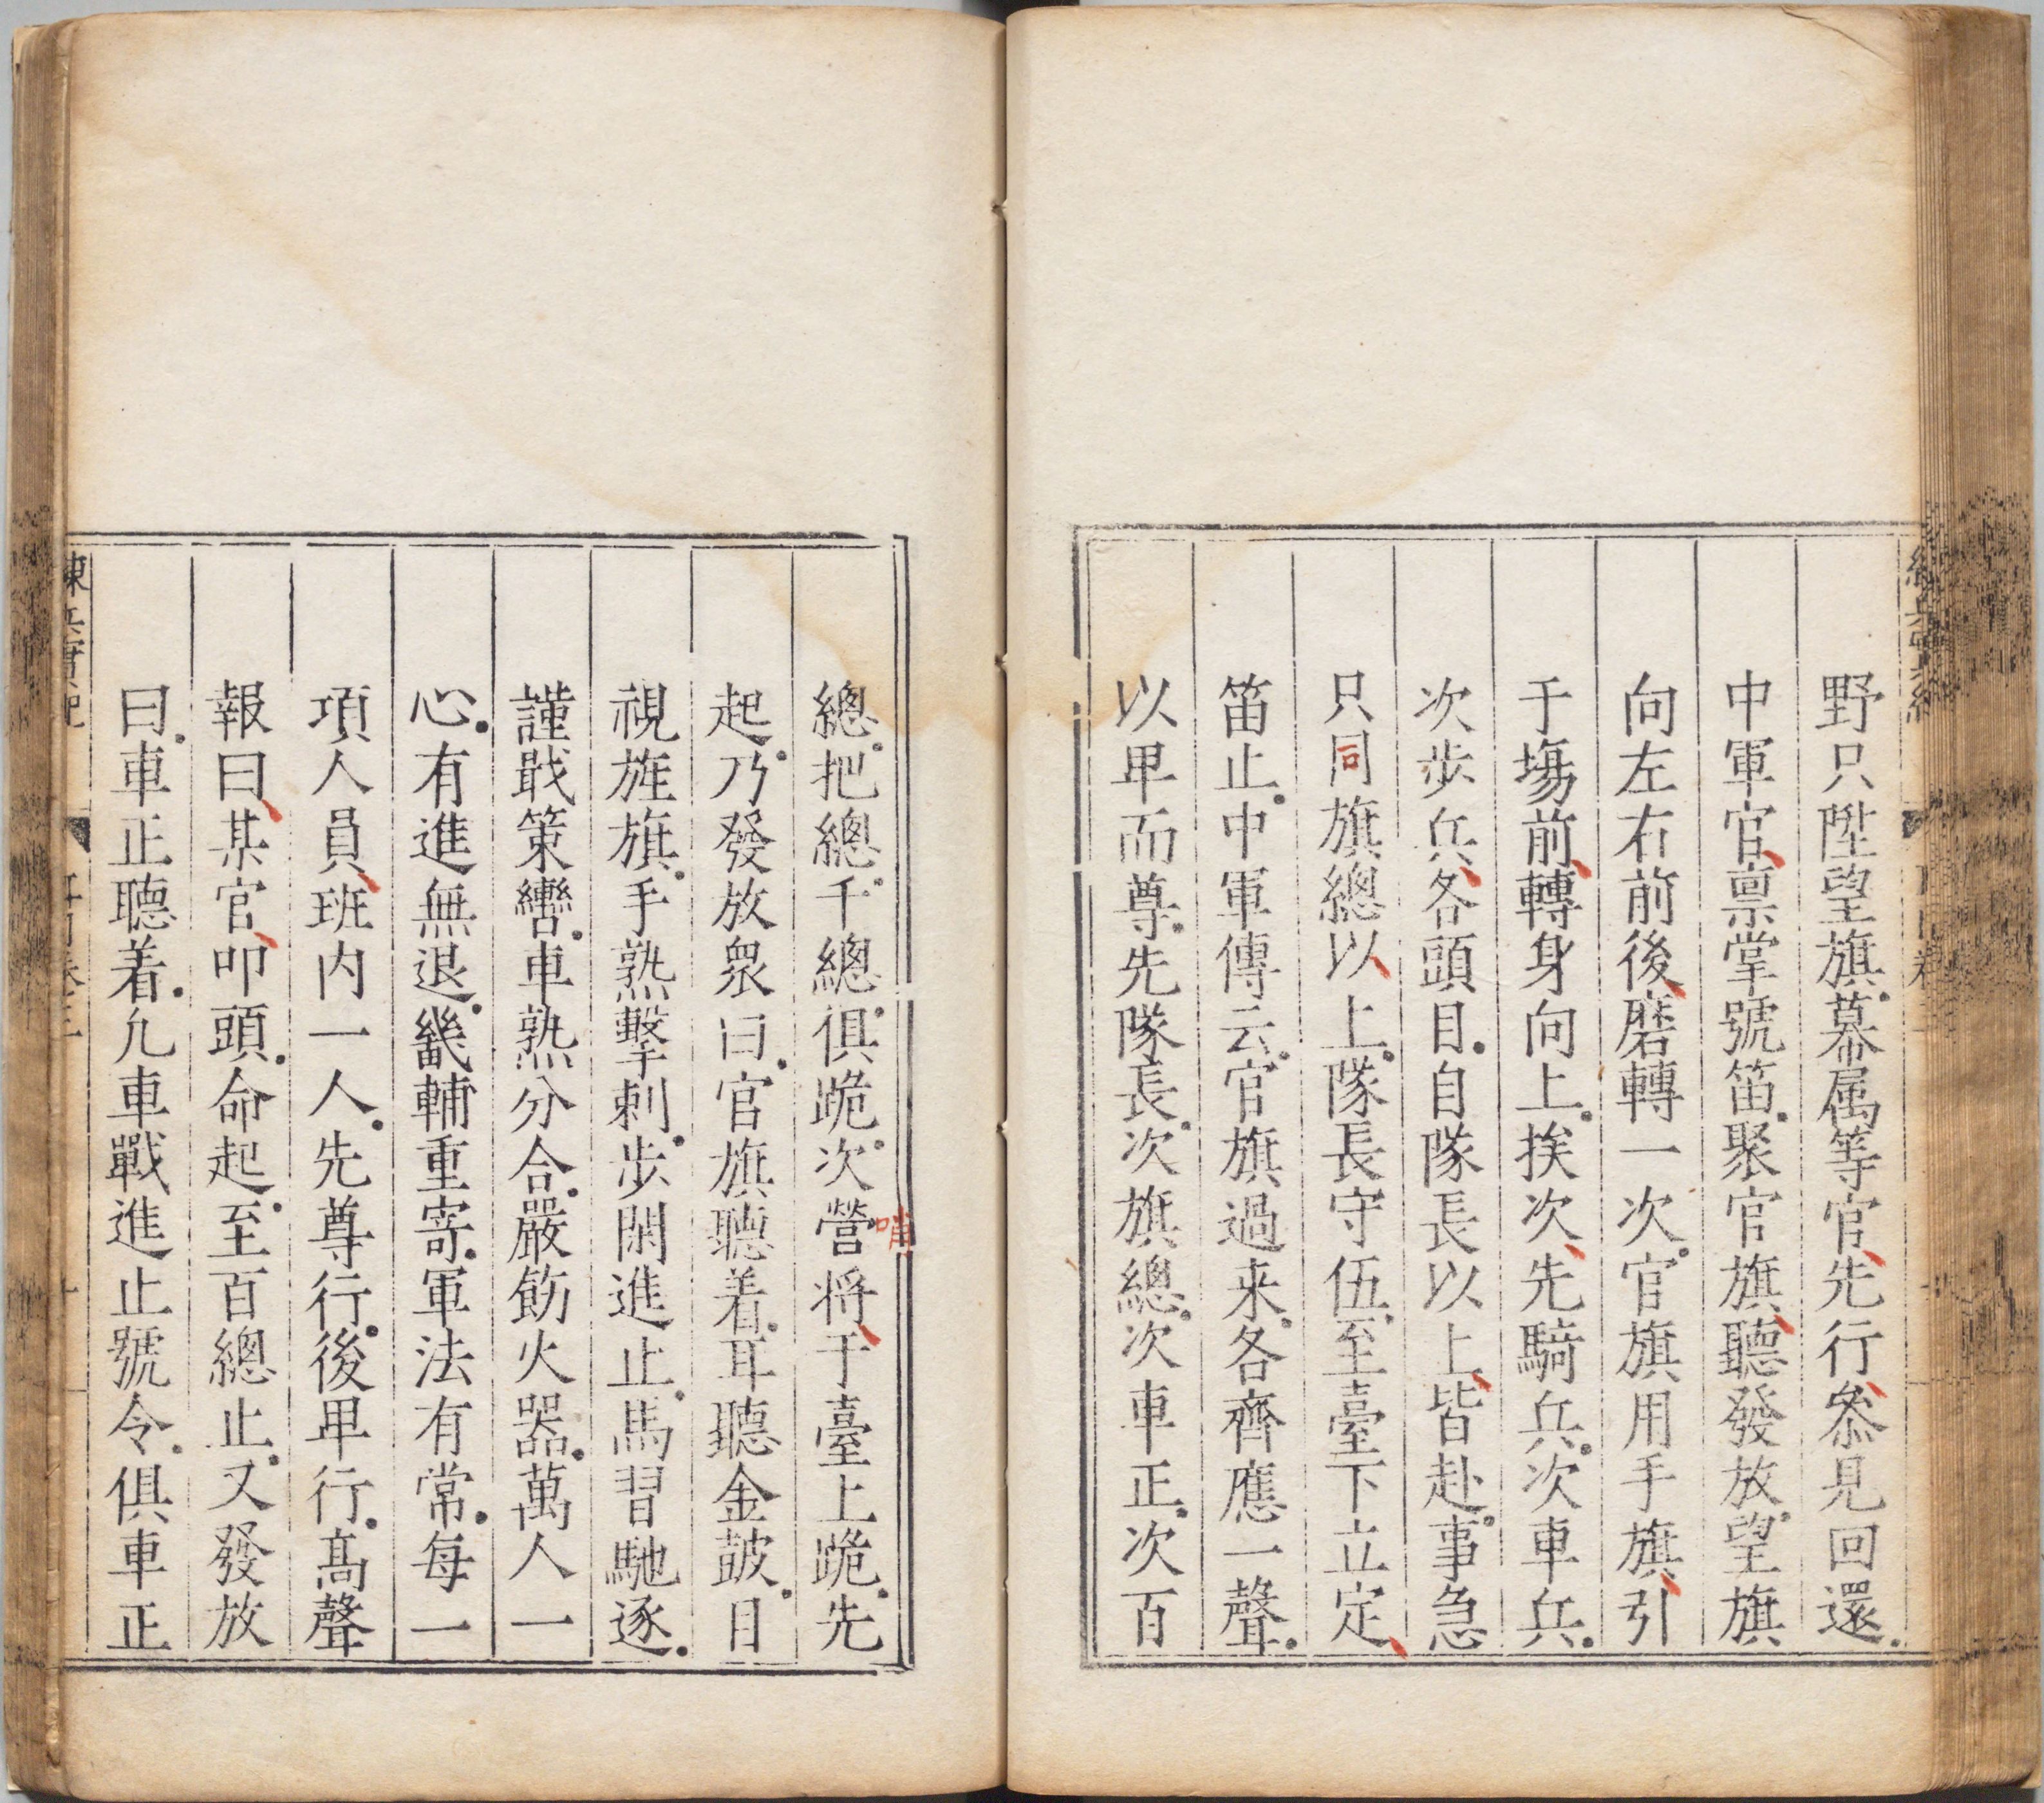 野只陞望旗幕属等官先行叅見回還
中軍官禀掌號笛聚官旗聽發放望旗
向左右前後磨轉一次官旗用手旗引
于塲前轉身向上挨次先騎兵次車兵
次步兵各頭目自隊長以上皆赴事急
只同旗總以上隊長守伍至臺下立定
笛止中軍傳云官旗過来各齊應一聲
以卑而尊先隊長次旗總次車正次百
總把總千總俱跪次營将于臺上跪先
哨
起乃發放衆曰官旗聽着耳聽金鼓目
視旌旗手熟擊刺步閑進止馬習馳逐
謹戢策轡車熟分合嚴飭火器萬人一
心有進無退畿輔重寄軍法有常每一
項人員班内一人先尊行後卑行髙聲
報曰某官叩頭命起至百總止又發放
曰車正聽着凢車戰進止號令俱車正
練兵實紀